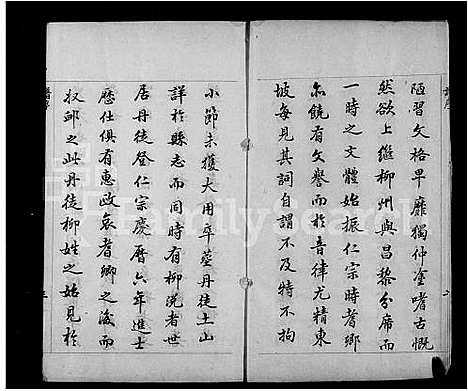 陋習文格卑靡獨仲塗嗜古慨
然欲上繼柳州與昌黎分席而
一時之文體始振仁宗時耆卿
亦饒有文譽而於音律尤精東
坡每見其詞自謂不及特不拘
小節未獲大用卒葬丹徒土山
詳於縣志而同時有柳浣者世
居丹徒登仁宗慶曆六年進士
歷仕俱有惠政哀耆卿之淪而
收邱之此丹徒柳姓之始見於
FamilySearch